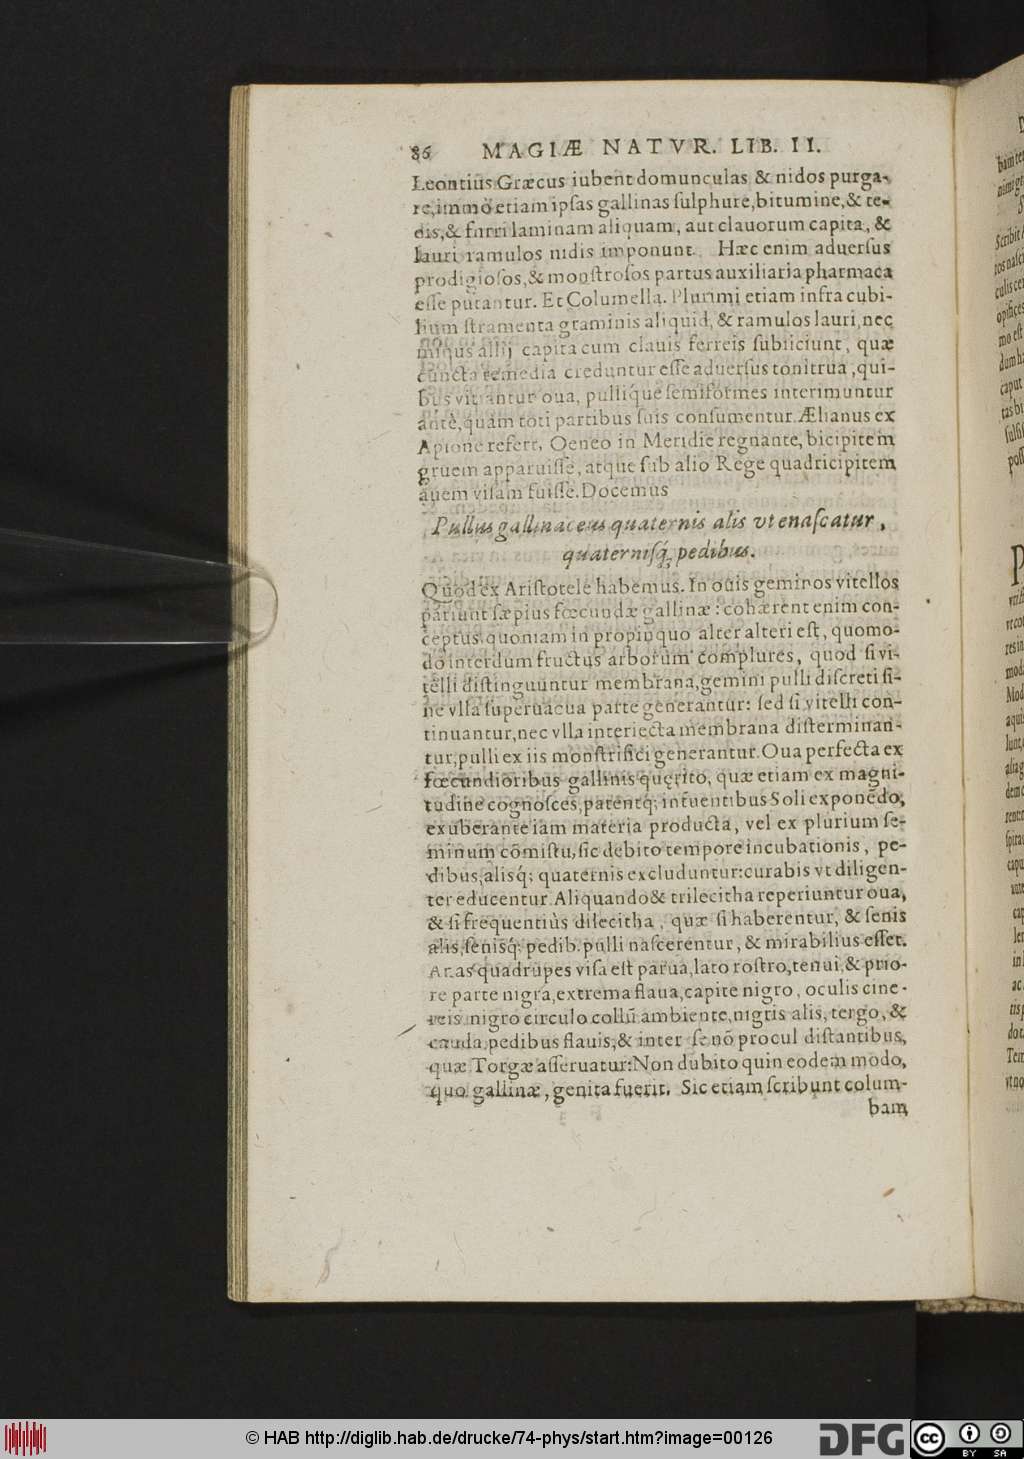 86 MAGIÆ NATVR. LIB. II.
Leontius Græcus iubent domunculas & nidos purga-
re, immò etiam ipsas gallinas sulphure, bitumine, & te-
dis, & farri laminam aliquam, aut clauorum capita, &
lauri ramulos nidis imponunt. Hæc enim aduersus
prodigiosos, & monstrosos partus auxiliaria pharmaca
esse putantur. Et Columella. Plurimi etiam infra cubi-
lium stramenta graminis aliquid, & ramulos lauri, nec
minus allij capita cum clauis ferreis subiiciunt, quæ
cuncta remedia creduntur esse aduersus tonitrua, qui-
bus vitiantur oua, pulliq́ue semiformes interimuntur
antè, quàm toti partibus suis consumentur. Ælianus ex
Apione refert, Oeneo in Meridie regnante, bicipitem
gruem apparuisse, atque sub alio Rege quadricipitem
auem visam fuisse. Docemus
Pullus gallinaceus quaternis alis vt enascatur,
quaternisq́; pedibus.
Quod ex Aristotele habemus. In ouis geminos vitellos
pariunt sæpius fœcundæ gallinæ: cohærent enim con-
ceptus, quoniam in propinquo alter alteri est, quomo-
do interdum fructus arborum complures, quod si vi-
telli distinguuntur membrana, gemini pulli discreti si-
ne vlla superuacua parte generantur: sed si vitelli con-
tinuantur, nec vlla interiecta membrana disterminan-
tur, pulli ex iis monstrifici generantur. Oua perfecta ex
fœcundioribus gallinis quęrito, quæ etiam ex magni-
tudine cognosces, patentq́; intuentibus Soli exponẽdo,
exuberante iam materia producta, vel ex plurium se-
minum cõmistu, sic debito tempore incubationis, pe-
dibus, alisq́; quaternis excluduntur: curabis vt diligen-
ter educentur. Aliquando & trilecitha reperiuntur oua,
& si frequentiùs dilecitha, quæ si haberentur, & senis
alis, senisq́; pedib. pulli nascerentur, & mirabilius esset.
Anas quadrupes visa est parua, lato rostro, tenui, & prio-
re parte nigra, extrema flaua, capite nigro, oculis cine-
reis, nigro circulo collũ ambiente, nigris alis, tergo, &
cauda, pedibus flauis, & inter se nõ procul distantibus,
quæ Torgæ asseruatur: Non dubito quin eodem modo,
quo gallinæ, genita fuerit. Sic etiam scribunt colum-
bam
© HAB http://diglib.hab.de/drucke/74-phys/start.htm?image=00126
DFG
cc
BY SA